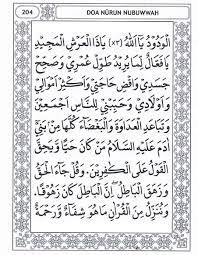 204
DOA NÛRUN NUBUWWAH
الْوَدُودُ يَا اَللهُ (×٣) يَاذَا الْعَرْشِ الْمَجِيْدِ
يَا فَعَّالُ لِمَا يُرِيْدُ طَوِّلْ عُمْرِيْ وَصَحِّحْ
جَسَدِيْ وَاقْضِ حَاجَتِيْ وَاَكْثِرْ اَمْوَالِيْ
وَاَوْلَادِيْ وَحَبِّبْنِيْ لِلنَّاسِ اَجْمَعِيْنَ
وَتَبَاعَدِ الْعَدَاوَةَ وَالْبَغْضَاءَ كُلَّهَا مِنْ بَنِيْ
اٰدَمَ عَلَيْهِ السَّلَامُ مَنْ كَانَ حَيًّا وَيَحِقَّ
الْقَوْلُ عَلَى الْكٰفِرِيْنَ. وَقُلْ جَاءَ الْحَقُّ
وَزَهَقَ الْبَاطِلُ اِنَّ الْبَاطِلَ كَانَ زَهُوْقًا.
وَنُنَزِّلُ مِنَ الْقُرْاٰنِ مَا هُوَ شِفَاءٌ وَرَحْمَةٌ